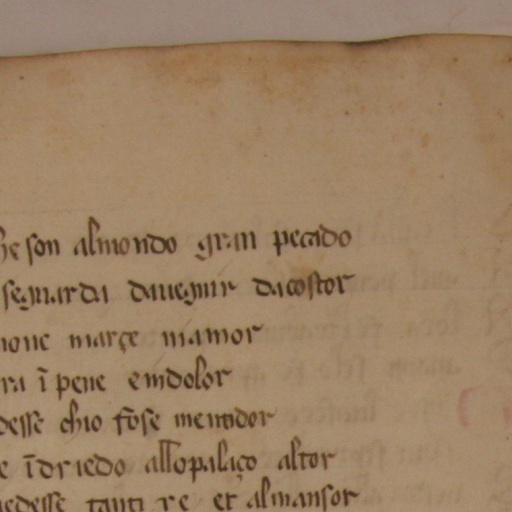 he son almondo gran pecado
seguarda dauegnir dacostor
moue março mamor
ra ī pene emdolor
desse chio fose mentidor
e īdriedo allopalaço altor
edesse tanti re et almansor